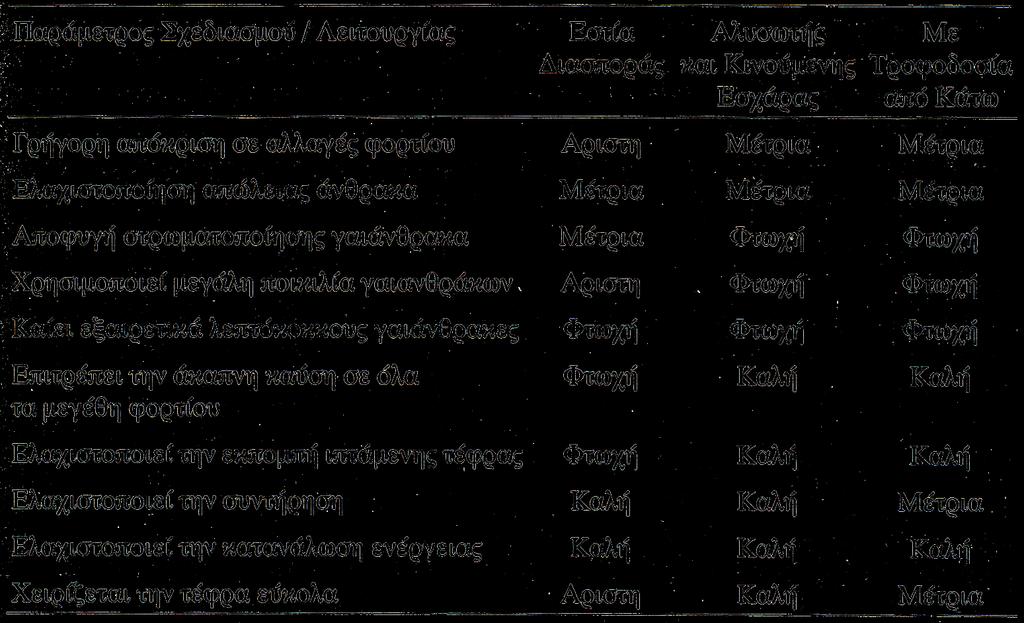 Παράμετρος Σχεδιασμού / Λειτουργίας Εστία Αλυσωτής Με
Διασποράς και Κινούμενης Τροφοδοσία
Εσχάρας από Κάτω
Γρήγορη απόκριση σε αλλαγές φορτίου Αριστη Μέτρια Μέτρια
Ελαχιστοποίηση απώλειας άνθρακα Μέτρια Μέτρια Μέτρια
Αποφυγή στρωματοποίησης γαιάνθρακα Μέτρια Φτωχή Φτωχή
Χρησιμοποιεί μεγάλη ποικιλία γαιανθράκων Αριστη Φτωχή Φτωχή
Καίει εξαιρετικά λεπτόκοκκους γαιάνθρακες Φτωχή Φτωχή Φτωχή
Επιτρέπει την άκαπνη καύση σε όλα Φτωχή Καλή Καλή
τα μεγέθη φορτίου
Ελαχιστοποιεί την εκπομπή ιπτάμενης τέφρας Φτωχή Καλή Καλή
Ελαχιστοποιεί την συντήρηση Καλή Καλή Μέτρια
Ελαχιστοποιεί την κατανάλωση ενέργειας Καλή Καλή Καλή
Χειρίζεται την τέφρα εύκολα Αριστη Καλή Μέτρια